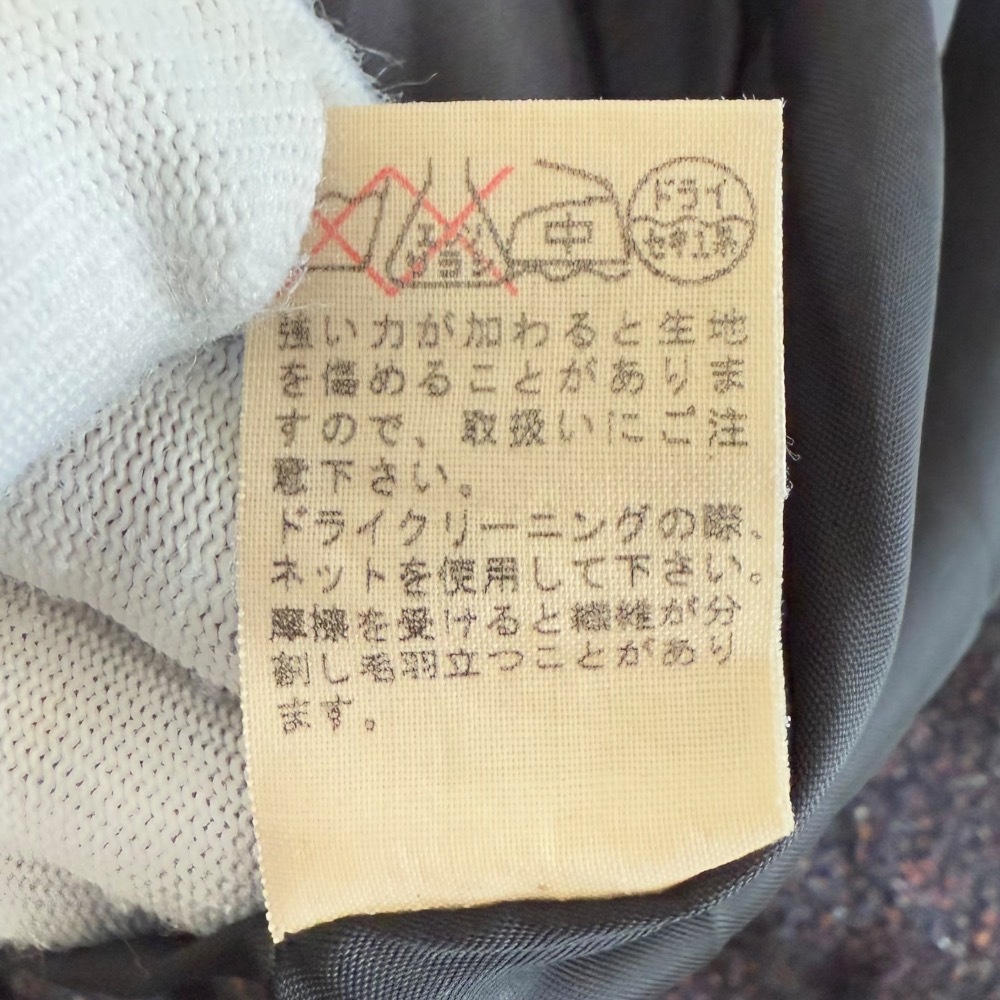 エンソ サラシ 中 ドライ
セキユ系
強い力が加わると生地
を傷めることがありま
すので、取扱いにご注
意下さい。
ドライクリーニングの際、
ネットを使用して下さい。
摩擦を受けると繊維が分
割し毛羽立つことがあり
ます。